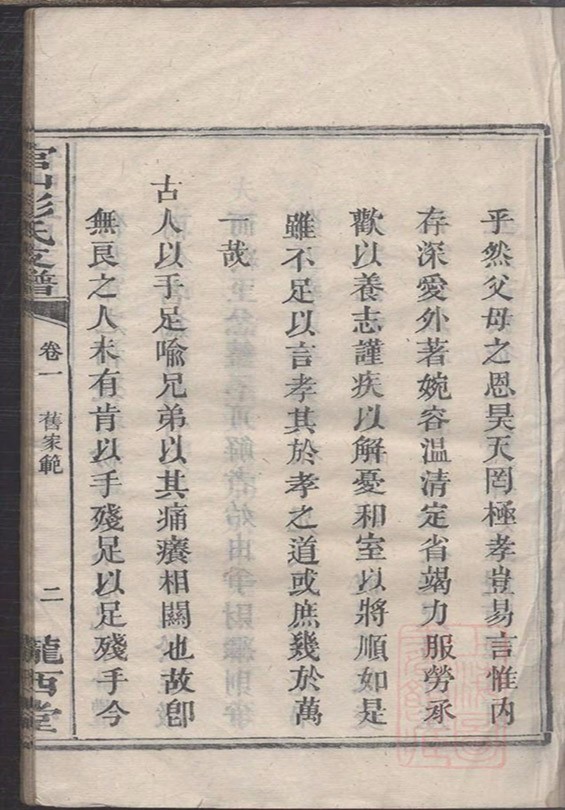 乎然父母之恩昊天罔極孝豈易言惟內
存深愛外著婉容温清定省竭力服勞承
歡以養志謹疾以解憂和室以將順如是
雖不足以言孝其於孝之道或庶幾於萬
一哉
古人以手足喻兄弟以其痛癢相關也故卽
無良之人未有肯以手殘足以足殘手今
官山彭氏支譜
卷一
舊家範
二
隴西堂